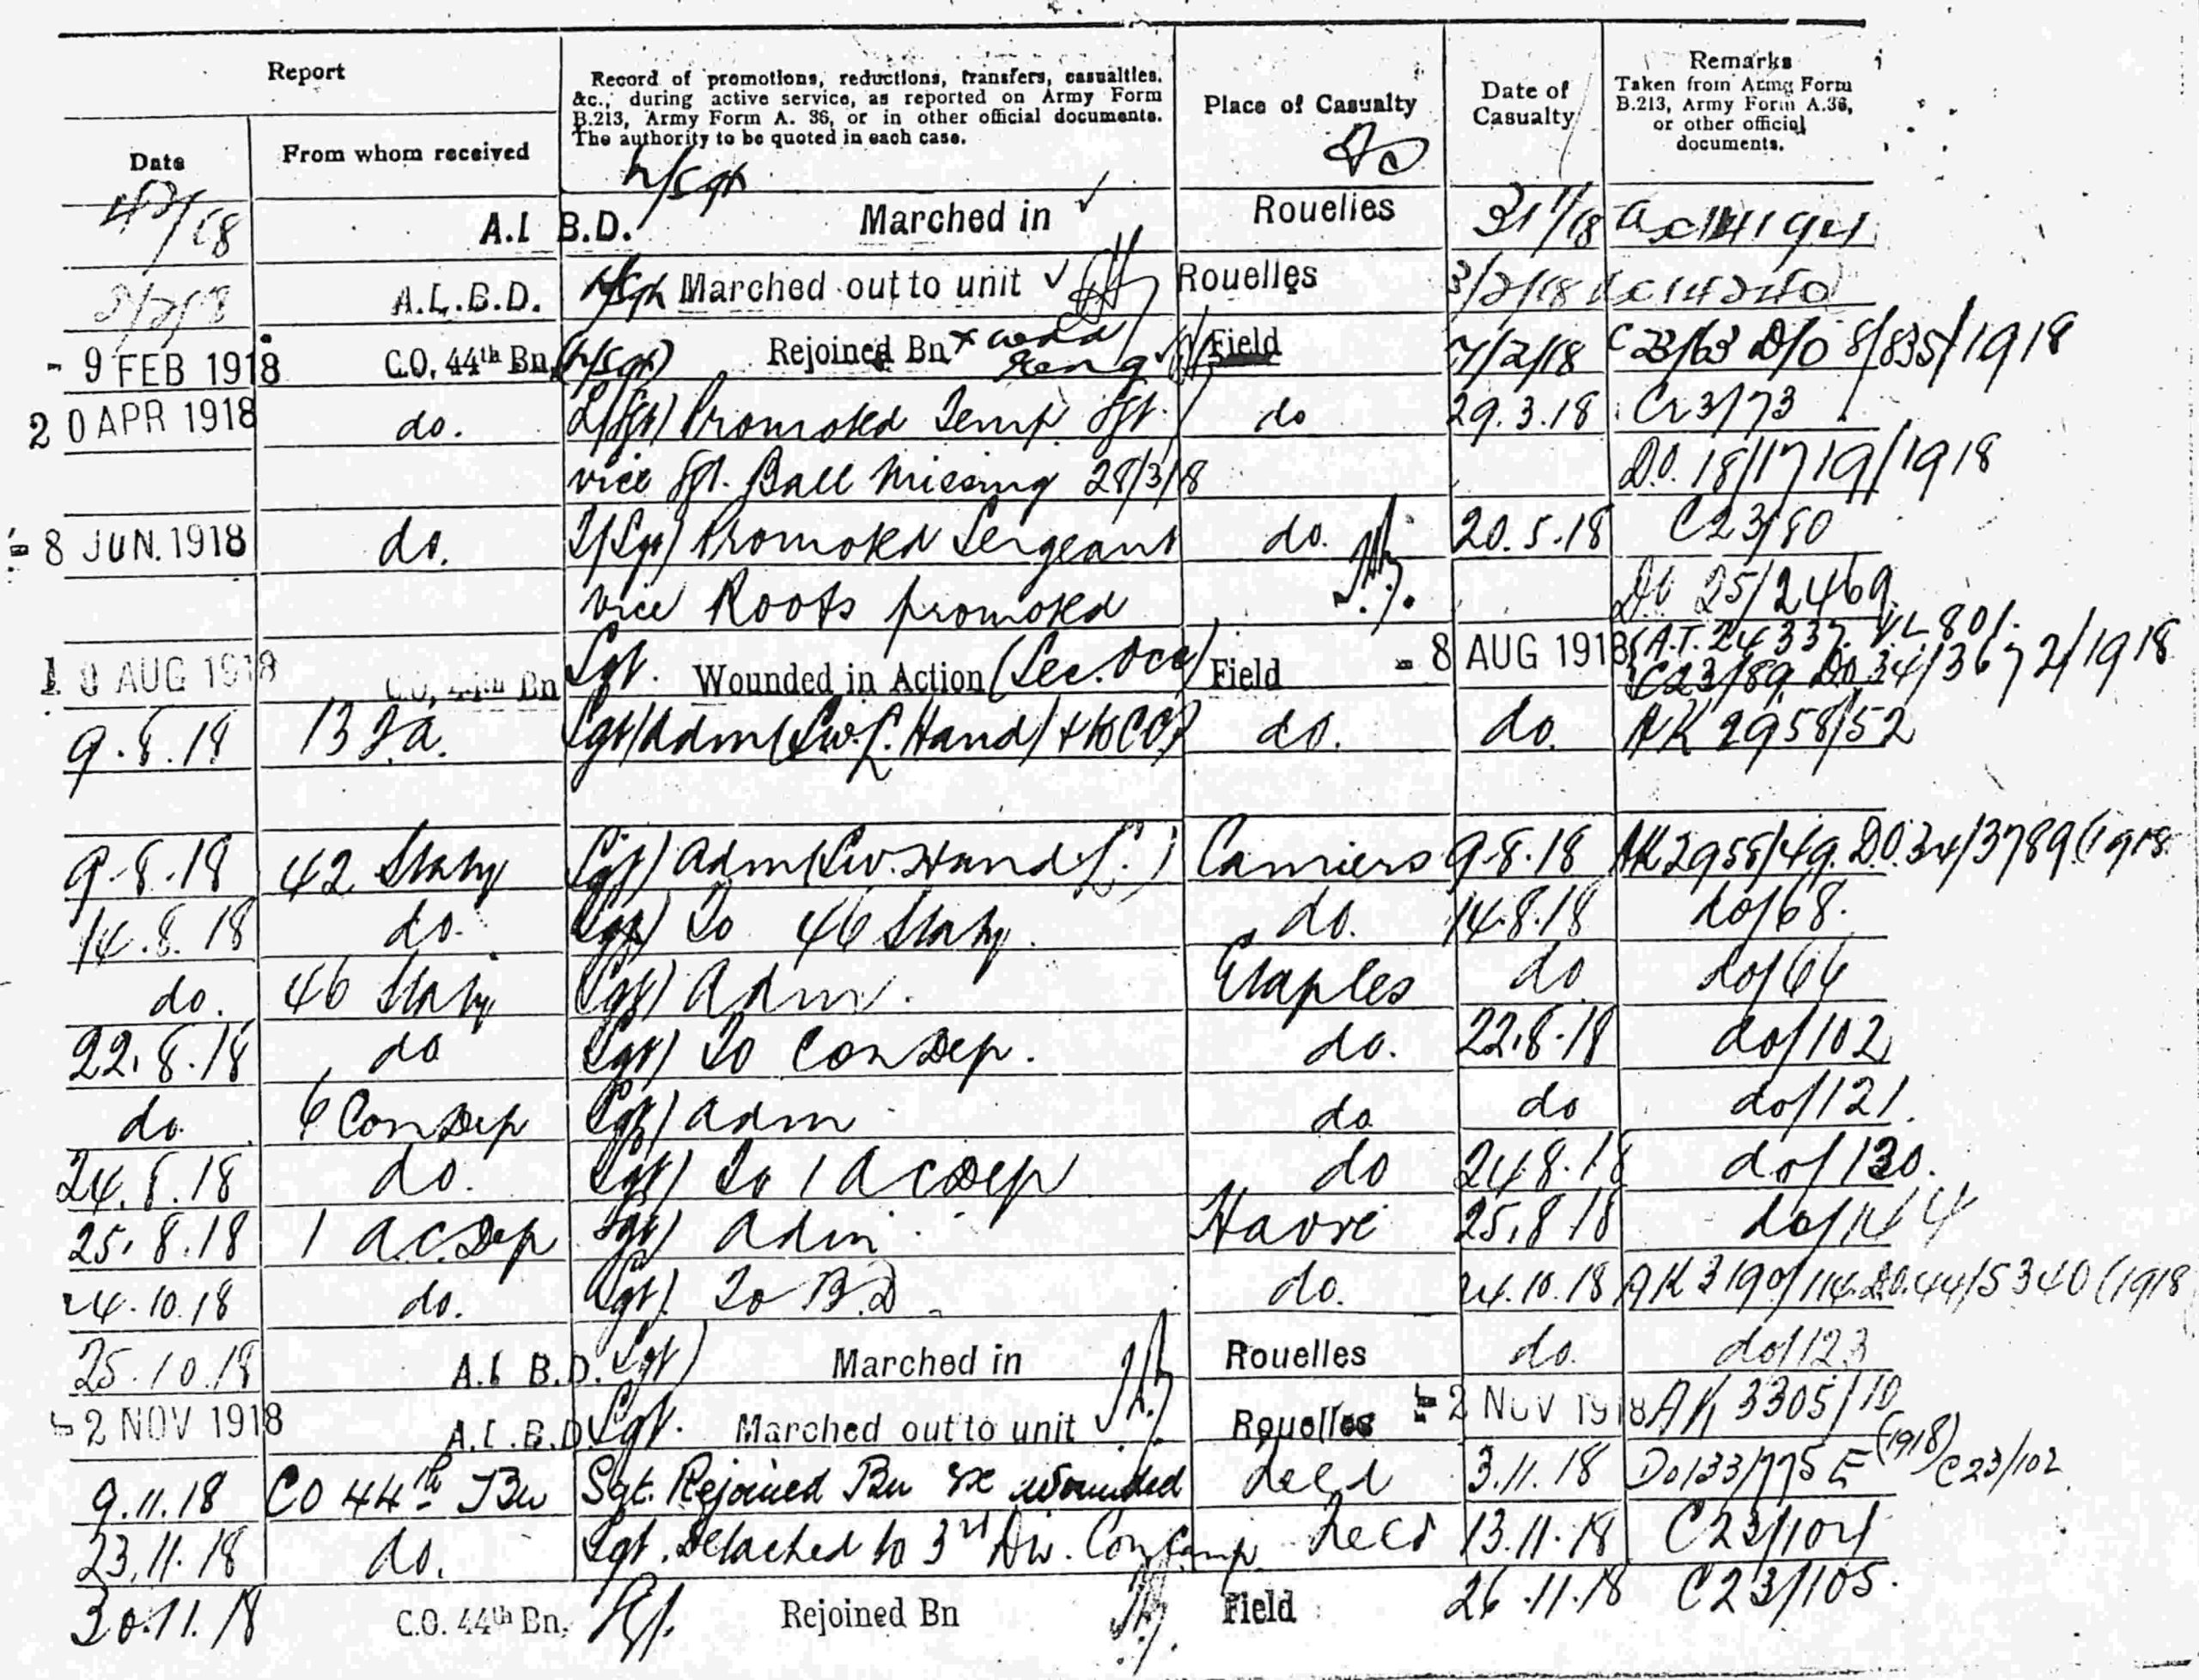 Report
Record of promotions, reductions, transfers, casualties,
&c., during active service, as reported on Army Form
B.213, Army Form A. 36, or in other official documents.
The authority to be quoted in each case.
Place of Casualty
Date of
Casualty
Remarks
Taken from Army Form
B.213, Army Form A.36,
or other official
documents.
Date
From whom received
A.I B.D. Marched in Rouelles
A.I.B.D. Marched out to unit Rouelles 3/2/18
- 9 FEB 1918 C.O. 44th Bn. Rejoined Bn Field 7/2/18 C23/63 D/O 8/835/1918
20 APR 1918 do. Promoted Temp Sgt. do 29.3.18 C23/73
vice Sgt. Ball Missing 28/3/18 D.O. 18/1719/1918
- 8 JUN. 1918 do. T/Sgt) Promoted Sergeant do. 20.5.18 C23/80
vice Roots promoted DO 25/2469
10 AUG 1918 C.O. 44th Bn Sgt. Wounded in Action (Sec. Occ) Field - 8 AUG 1918 A.T. 24337
C23/89 DO 34/3672/1918
9.8.18 13 F.A. Sgt) Adm (S.W. L. Hand) do. do. AK 2958/52
9.8.18 42 Staty Sgt) Adm (S.W. Hand L.) Camiers 9.8.18 AK 2958/49. D.O. 34/3789/1918
14.8.18 do. Sgt) To 46 Staty. do. 14.8.18 do/68.
do. 46 Staty Sgt) Adm. Etaples do do/66
22.8.18 do Sgt) To Con Dep. do. 22.8.18 do/102
do 6 Con Dep Sgt) Adm do do do/121.
24.8.18 do. Sgt) To 1 A C Dep do 24.8.18 do/130.
25.8.18 1 A.C. Dep Sgt) Adm Havre 25.8.18 do/144
24.10.18 do. Sgt). To B.D. do. 24.10.18 AK 3190/114. D.O. 44/5340/1918
25.10.18 A.I B.D. Sgt) Marched in Rouelles do. do/123
- 2 NOV 1918 A.I.B.D Sgt. Marched out to unit Rouelles - 2 NOV 1918 AK 3305/10
9.11.18 CO 44th Bn Sgt. Rejoined Bn ex wounded Field 3.11.18 Do133/775 E (1918) C23/102
23.11.18 do. Sgt. Detached to 3rd Div. Con Camp. Field 13.11.18 C23/104
30.11.18 C.O. 44th Bn. Sgt. Rejoined Bn Field 26.11.18 C23/105.